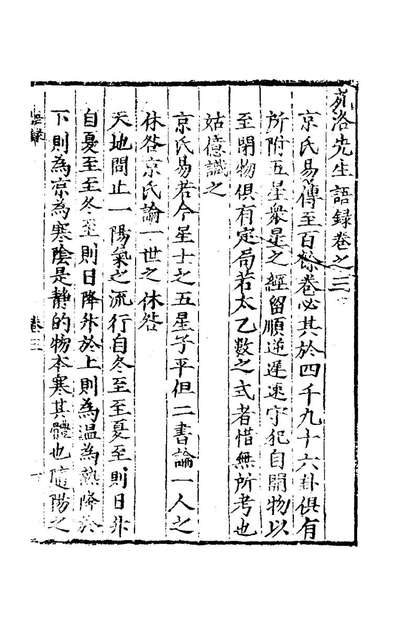 苑洛先生語録卷之三
京氏易傳至百餘卷必其於四千九十六卦俱有
所附五星衆星之經留順逆遲速守犯自開物以
至閉物俱有定局若太乙數之式者惜無所考也
姑億識之
京氏易若今星士之五星子平但二書論一人之
休咎京氏論一世之休咎
天地間止一陽氣之流行自冬至至夏至則日升
自夏至至冬至則日降升於上則為温為熱降於
下則為凉為寒陰是静的物本寒其體也隨陽之
語録
卷三